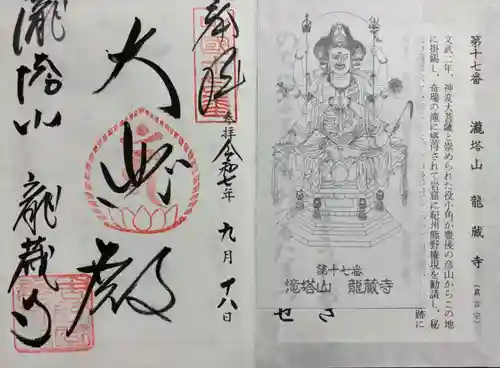 第十七番 瀧塔山 龍蔵寺 (真言宗)
文武二年、神変大菩薩と崇められた役小角が豊後の彦山からこの地
に掛錫し、奇瑞の滝に
されて岩窟に紀州熊野権現を勧請し、秘
跡に
さ
せ
第十七番
滝塔山 龍蔵寺
奉拝
参拝 令和七年 九月 十八日
大悲殿
瀧塔山 龍蔵寺